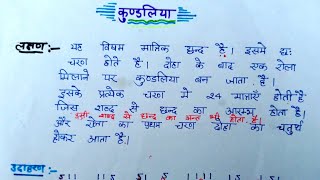 कुण्डलिया
लक्षण:- यह विषम मात्रिक छन्द है। इसमे छः
चरण होते है। दोहा के बाद एक रोला
मिलाने पर कुण्डलिया बन जाता है।
इसके प्रत्येक चरण मे 24 मात्राएँ होती हैं
जिस शब्द से छन्द का आरम्भ होता है।
इसी शब्द से छन्द का अन्त भी होता है।
और रोला का प्रथम चरण दोहा का चतुर्थ
होकर आता है।
उदाहरण:-